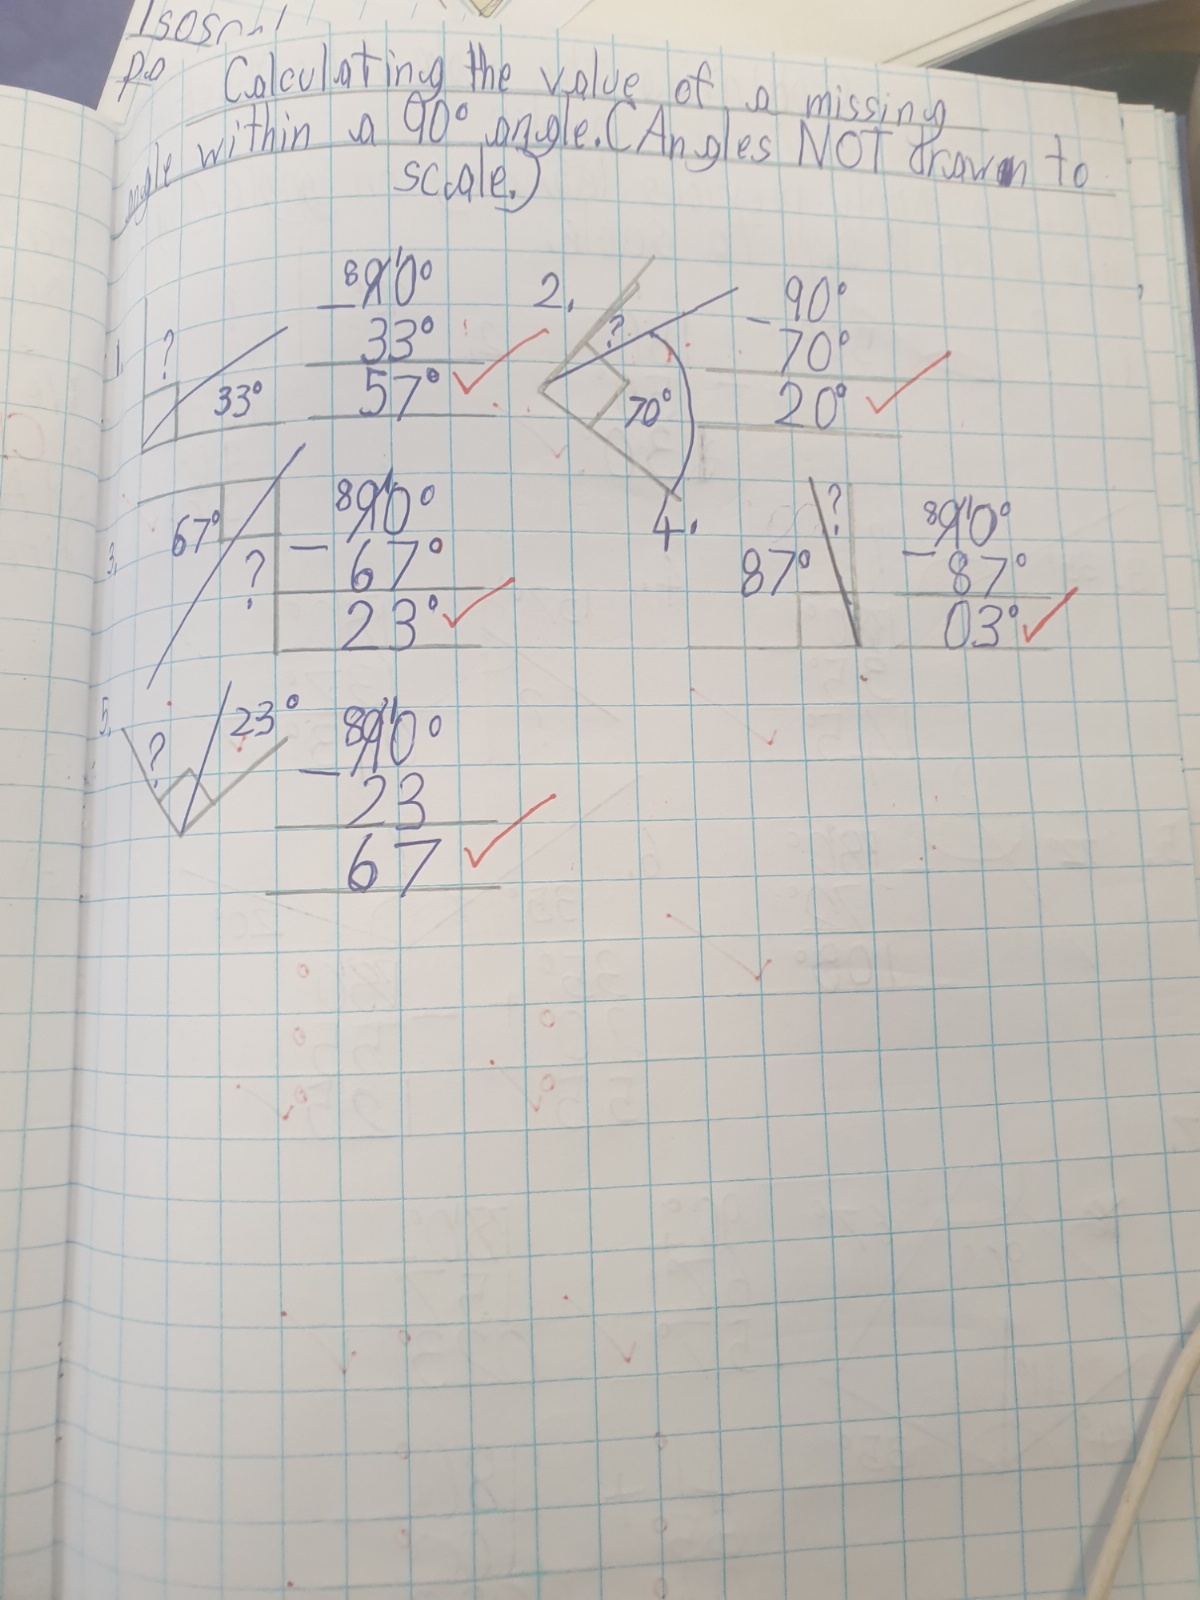 Calculating the value of a missing
angle within a 90° angle. (Angles NOT drawn to
scale.)
1.
?
33°
8 9 10°
- 33°
57°
2.
?
70°
90°
- 70°
20°
3.
67°
?
8 9 10°
- 67°
23°
4.
87°
?
8 9 10°
- 87°
03°
5.
?
23°
8 9 10°
- 23
67